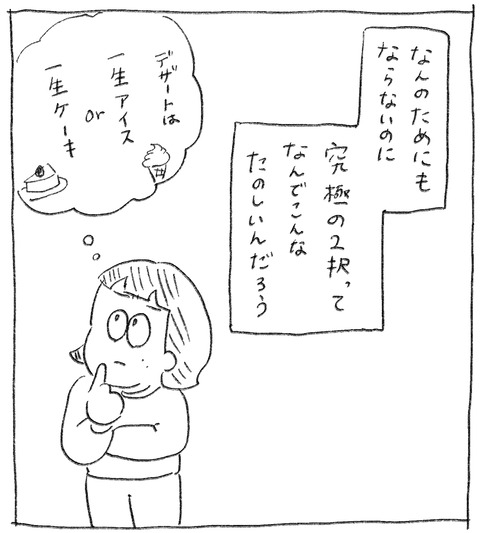 なんのためにも
ならないのに
究極の2択って
なんでこんな
たのしいんだろう
デザートは
一生アイス
or
一生ケーキ